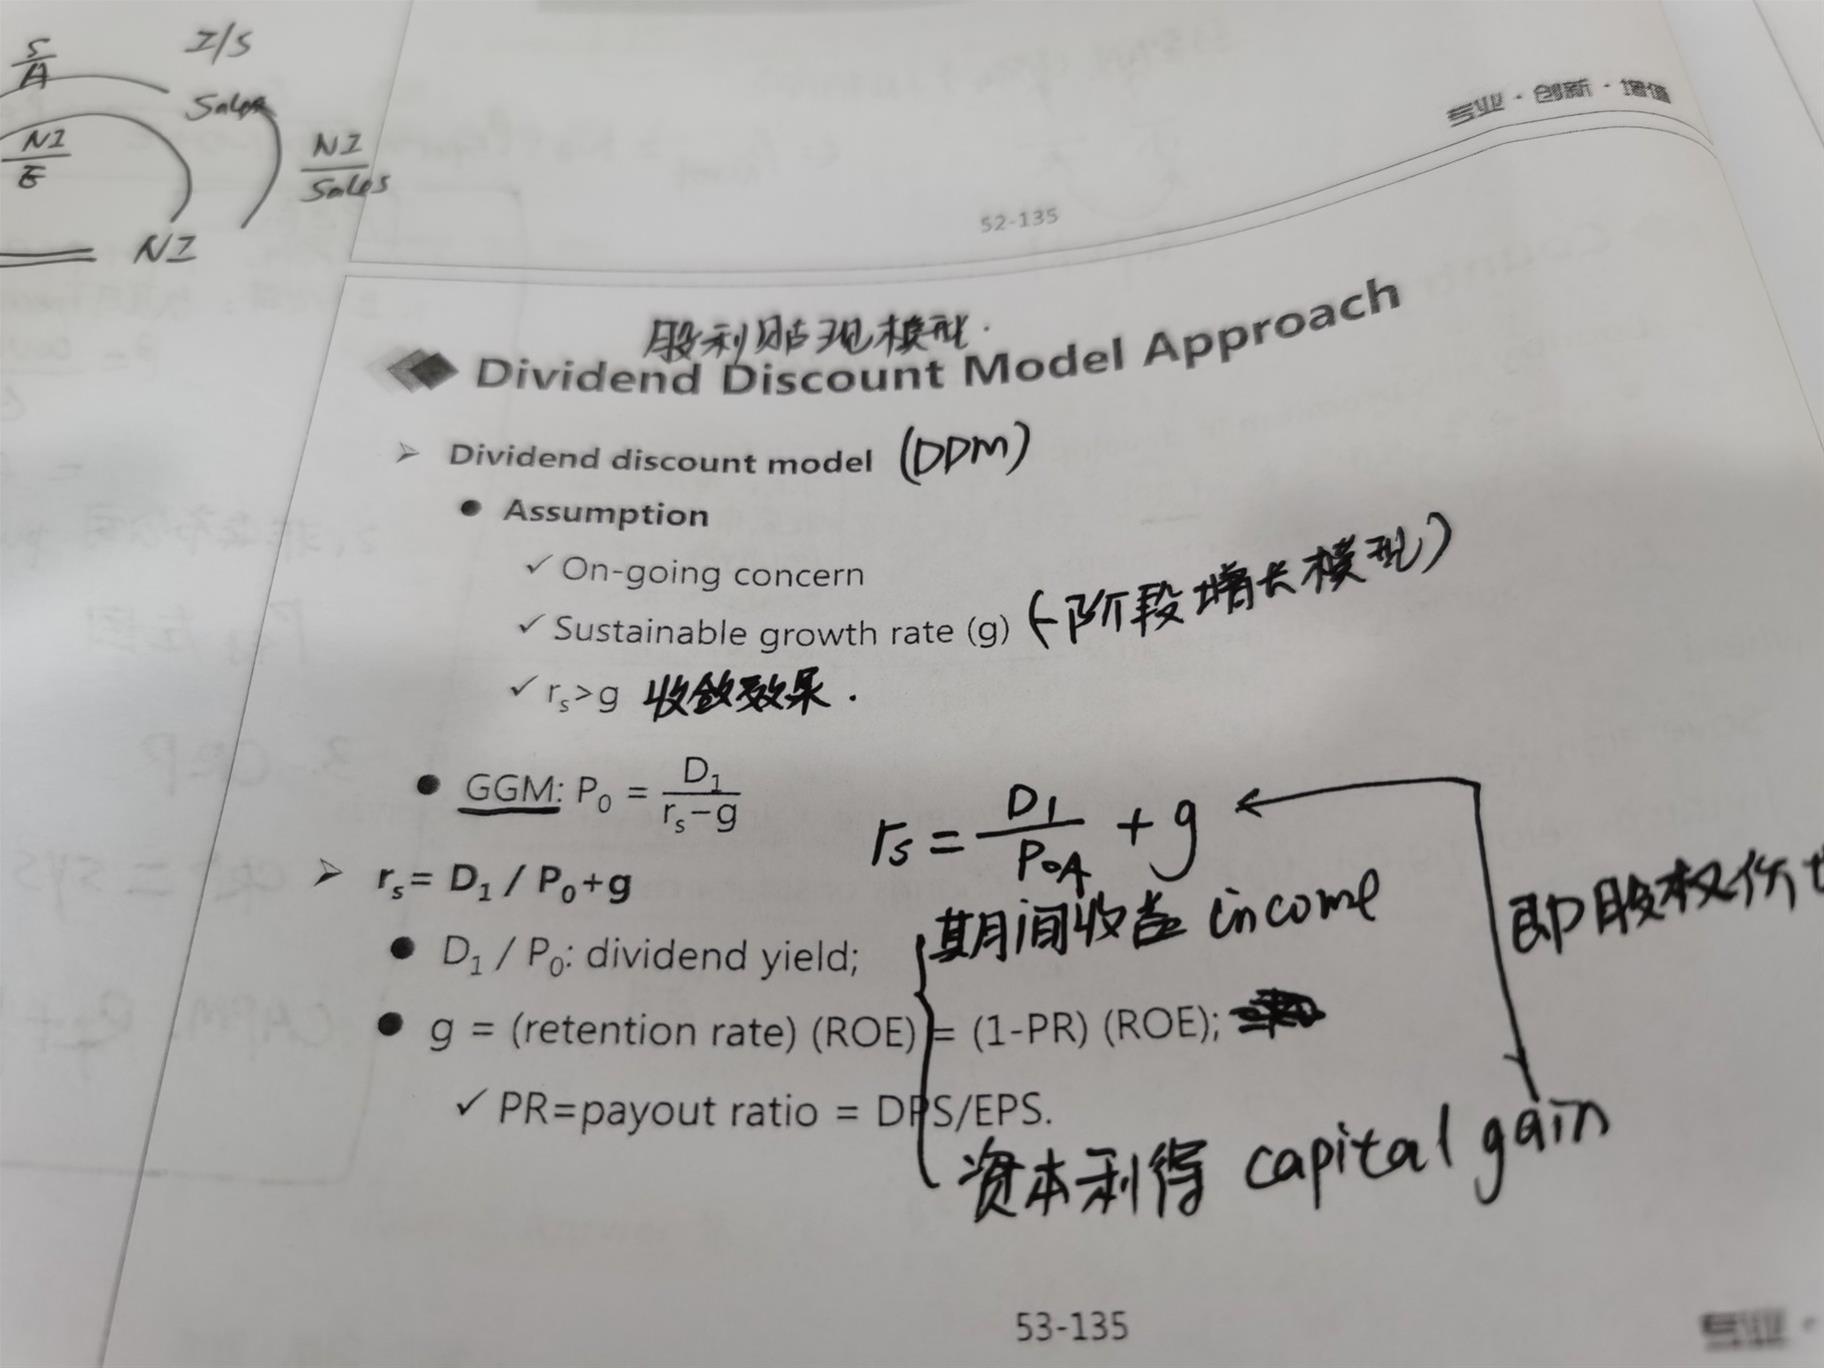 S/A
I/S
Sales
NI/E
NI/Sales
NI
专业·创新·增值
52-135
股利贴现模型.
Dividend Discount Model Approach
Dividend discount model (DDM)
Assumption
✓ On-going concern
✓ Sustainable growth rate (g) (一阶段增长模型)
✓ rs>g 收敛效果.
GGM: P0 = D1/(rs-g)
rs = D1/P0A + g
rs= D1 / P0+g
即股权价
期间收益 income
D1 / P0: dividend yield;
g = (retention rate) (ROE) = (1-PR) (ROE);
✓ PR=payout ratio = DPS/EPS.
资本利得 capital gain
53-135
专业·